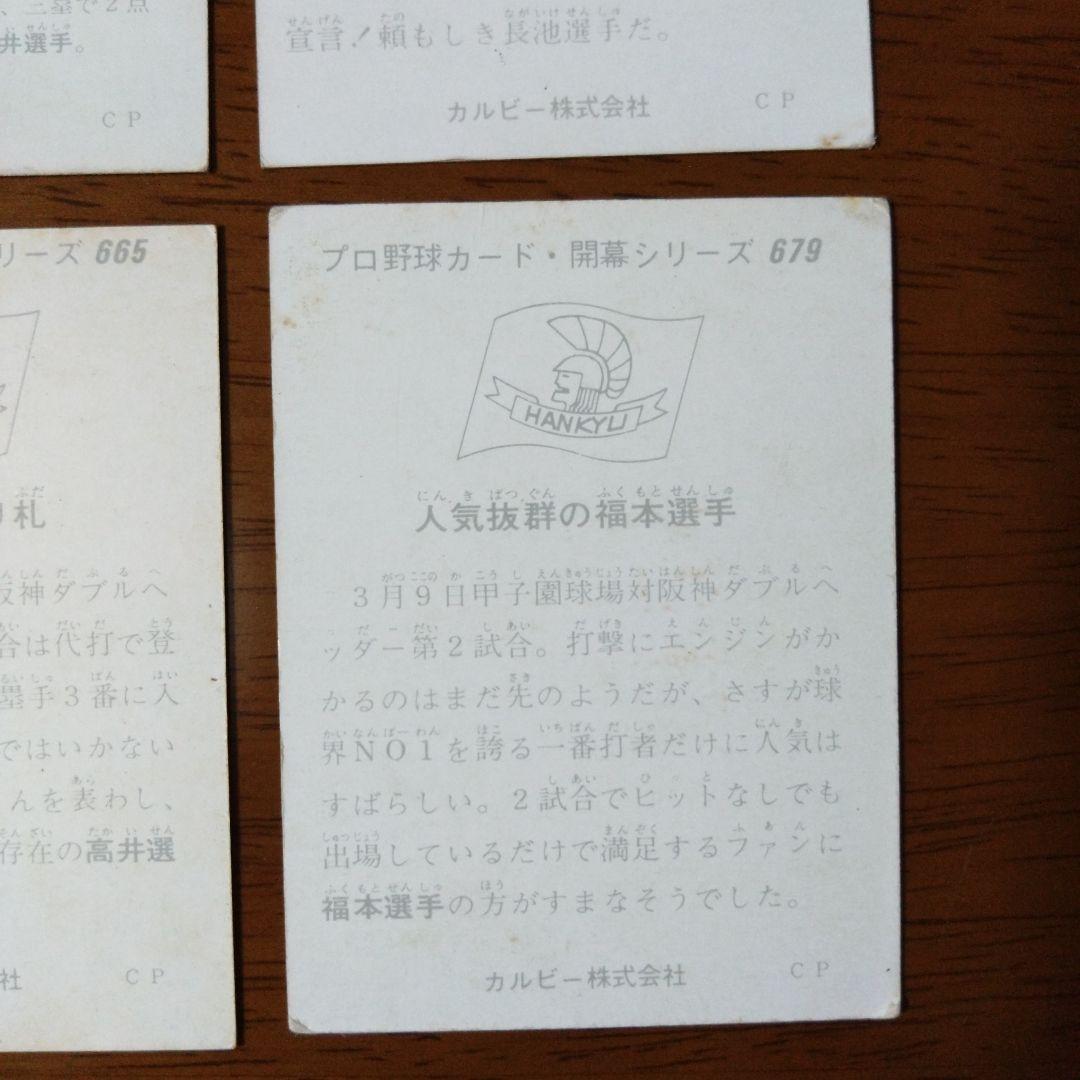 、三塁で2点
井選手。
CP
宣言！頼もしき長池選手だ。
カルビー株式会社 CP
リーズ 665
札
阪神ダブルヘ
合は代打で登
塁手3番に入
ではいかない
んを表わし、
存在の高井選
社 CP
プロ野球カード・開幕シリーズ 679
HANKYU
人気抜群の福本選手
3月9日甲子園球場対阪神ダブルヘ
ッダー第2試合。打撃にエンジンがか
かるのはまだ先のようだが、さすが球
界NO1を誇る一番打者だけに人気は
すばらしい。2試合でヒットなしでも
出場しているだけで満足するファンに
福本選手の方がすまなそうでした。
カルビー株式会社 CP